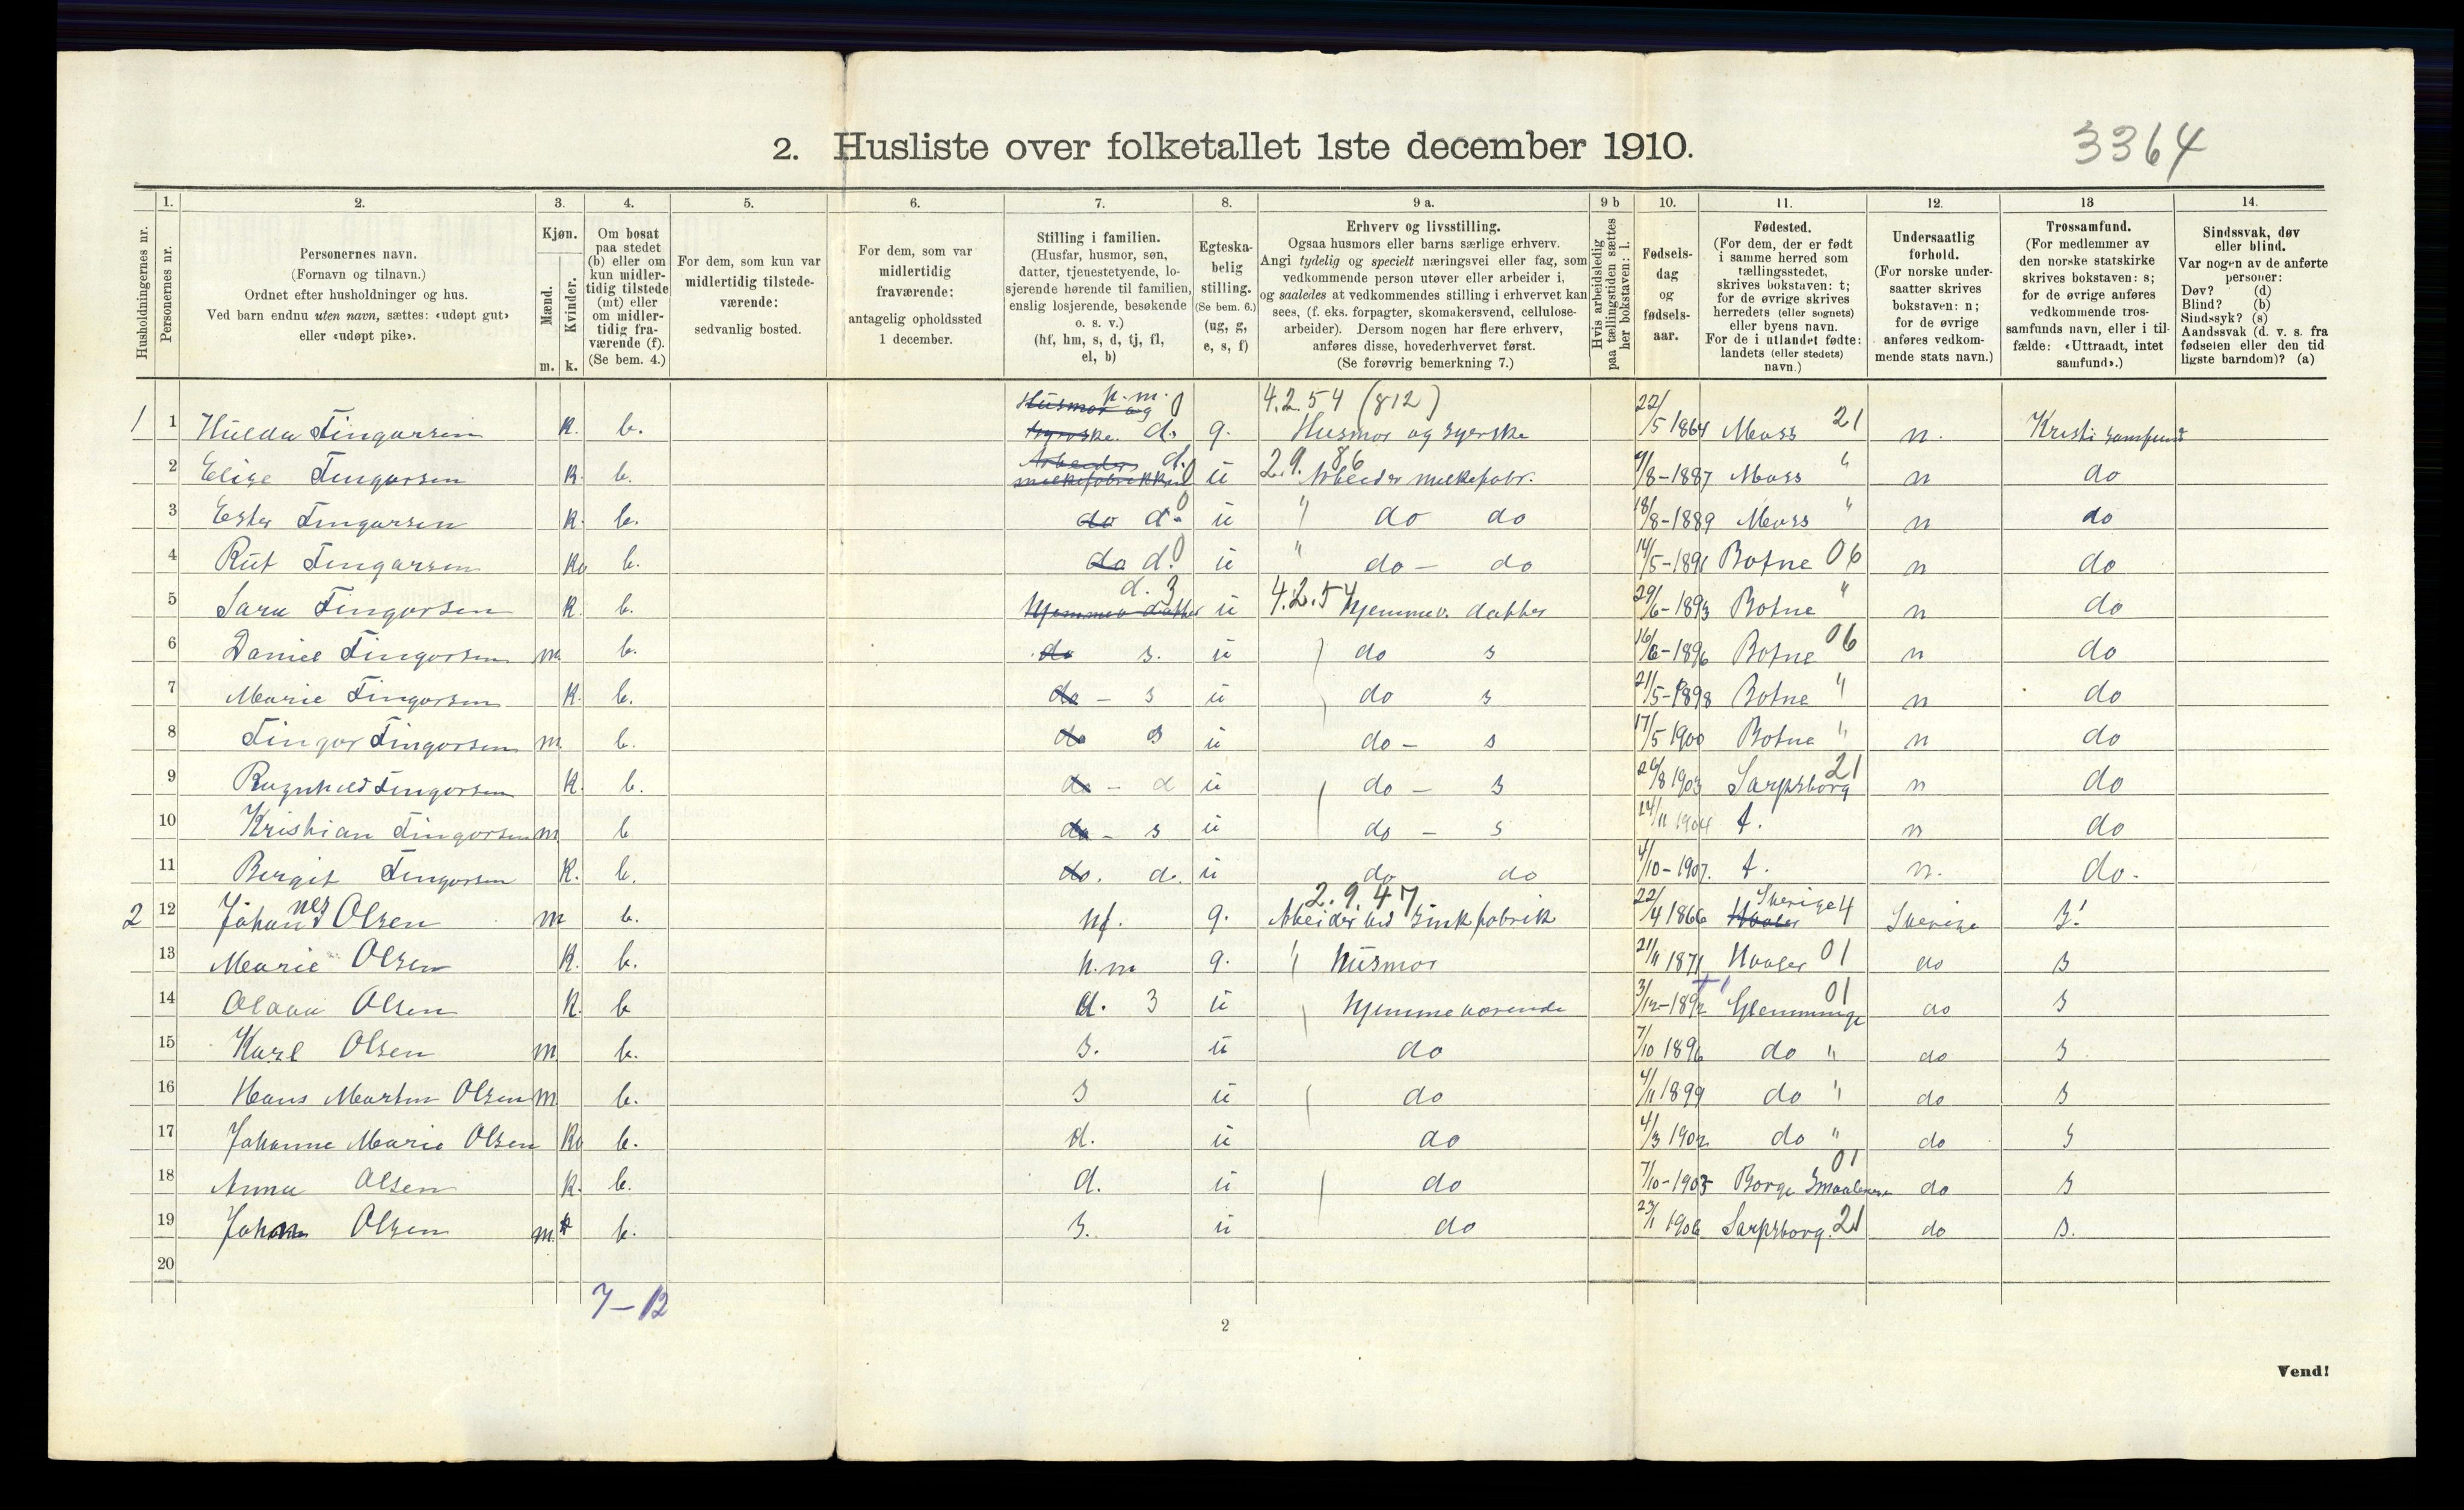 2. Husliste over folketallet 1ste december 1910.
3364
Husholdningernes nr.
1. Personernes nr.
2. Personernes navn. (Fornavn og tilnavn.) Ordnet efter husholdninger og hus. Ved barn endnu uten navn, sættes: «udøpt gut» eller «udøpt pike».
3. Kjøn. Mænd. m. Kvinder. k.
4. Om bosat paa stedet (b) eller om kun midlertidig tilstede (mt) eller om midlertidig fraværende (f). (Se bem. 4.)
5. For dem, som kun var midlertidig tilstedeværende: sedvanlig bosted.
6. For dem, som var midlertidig fraværende: antagelig opholdssted 1 december.
7. Stilling i familien. (Husfar, husmor, søn, datter, tjenestetyende, losjerende hørende til familien, enslig losjerende, besøkende o. s. v.) (hf, hm, s, d, tj, fl, el, b)
8. Egteskabelig stilling. (Se bem. 6.) (ug, g, e, s, f)
9 a. Erhverv og livsstilling. Ogsaa husmors eller barns særlige erhverv. Angi tydelig og specielt næringsvei eller fag, som vedkommende person utøver eller arbeider i, og saaledes at vedkommendes stilling i erhvervet kan sees, (f. eks. forpagter, skomakersvend, cellulosearbeider). Dersom nogen har flere erhverv, anføres disse, hovederhvervet først. (Se forøvrig bemerkning 7.)
9 b Hvis arbeidsledig paa tællingstiden sættes her bokstaven: l.
10. Fødselsdag og fødselsaar.
11. Fødested. (For dem, der er født i samme herred som tællingsstedet, skrives bokstaven: t; for de øvrige skrives herredets (eller sognets) eller byens navn. For de i utlandet fødte: landets (eller stedets) navn.)
12. Undersaatlig forhold. (For norske undersaatter skrives bokstaven: n; for de øvrige anføres vedkommende stats navn.)
13 Trossamfund. (For medlemmer av den norske statskirke skrives bokstaven: s; for de øvrige anføres vedkommende trossamfunds navn, eller i tilfælde: «Uttraadt, intet samfund».)
14. Sindssvak, døv eller blind. Var nogen av de anførte personer: Døv? (d) Blind? (b) Sindssyk? (s) Aandssvak (d. v. s. fra fødselen eller den tid ligste barndom)? (a)
h.m. 4.2.54 (812)
1 1 Hulda Tingorsen k. b. Husmor og d. 0 g. Husmor og syerske 22/5 1864 Moss 21 n. Kristi samfund
2 Elise Tingorsen k. b. Arbeider melkefabrikken d. 0 u 2.9.86 Arbeider melkefabr. /8-1887 Moss " n do
3 Ester Tingorsen k. b. do d. 0 u " do do 18/8-1889 Moss " n do
4 Rut Tingorsen k b. do d. 0 u " do - do 14/5-1891 Botne 06 n do
5 Sara Tingorsen k. b. Hjemmev datter d. 3 u 4.2.54 Hjemmev. datter 29/6-1893 Botne " n do
6 Daniel Tingorsen m b. do s. u do s 16/6-1896 Botne 06 n do
7 Marie Tingorsen k. b. do - s u do s 21/5-1898 Botne " n do
8 Tingor Tingorsen m b. do s u do - s 17/5 1900 Botne " n do
9 Ragnhild Tingorsen k. b. do - d u do - s 26/8 1903 Sarpsborg 21 n do
10 Kristian Tingorsen m b do - s u do - s 14/11 1904 t. n do
11 Bergit Tingorsen k. b. do. d. u do do 4/10-1907. t. n. do.
2 12 Johannes Olsen m b. hf. g. 2.9.47 Abeider ved Sinkfabrik 22/4 1866 Hvaler Sverige 4 Sverige s!
13 Marie Olsen k. b. h.m g. " Husmor 21/11 1871 Hvaler 01 do s
14 Olava Olsen k. b d. 3 u Hjemmeværende 3/12-1892 Glemminge 01 do s
15 Karl Olsen m b. s. u do 7/10 1896 do " do s
16 Hans Martin Olsen m b. s u do 4/11 1899 do " do s
17 Johanne Marie Olsen k b. d. u do 4/3 1902 do " do s
18 Anna Olsen k. b. d. u do 7/10-1903 Borge Smaalenene 01 do s
19 Johan Olsen m. b. s. u do 23/1 1906 Sarpsborg. 21 do s.
20
7-12
2
Vend!